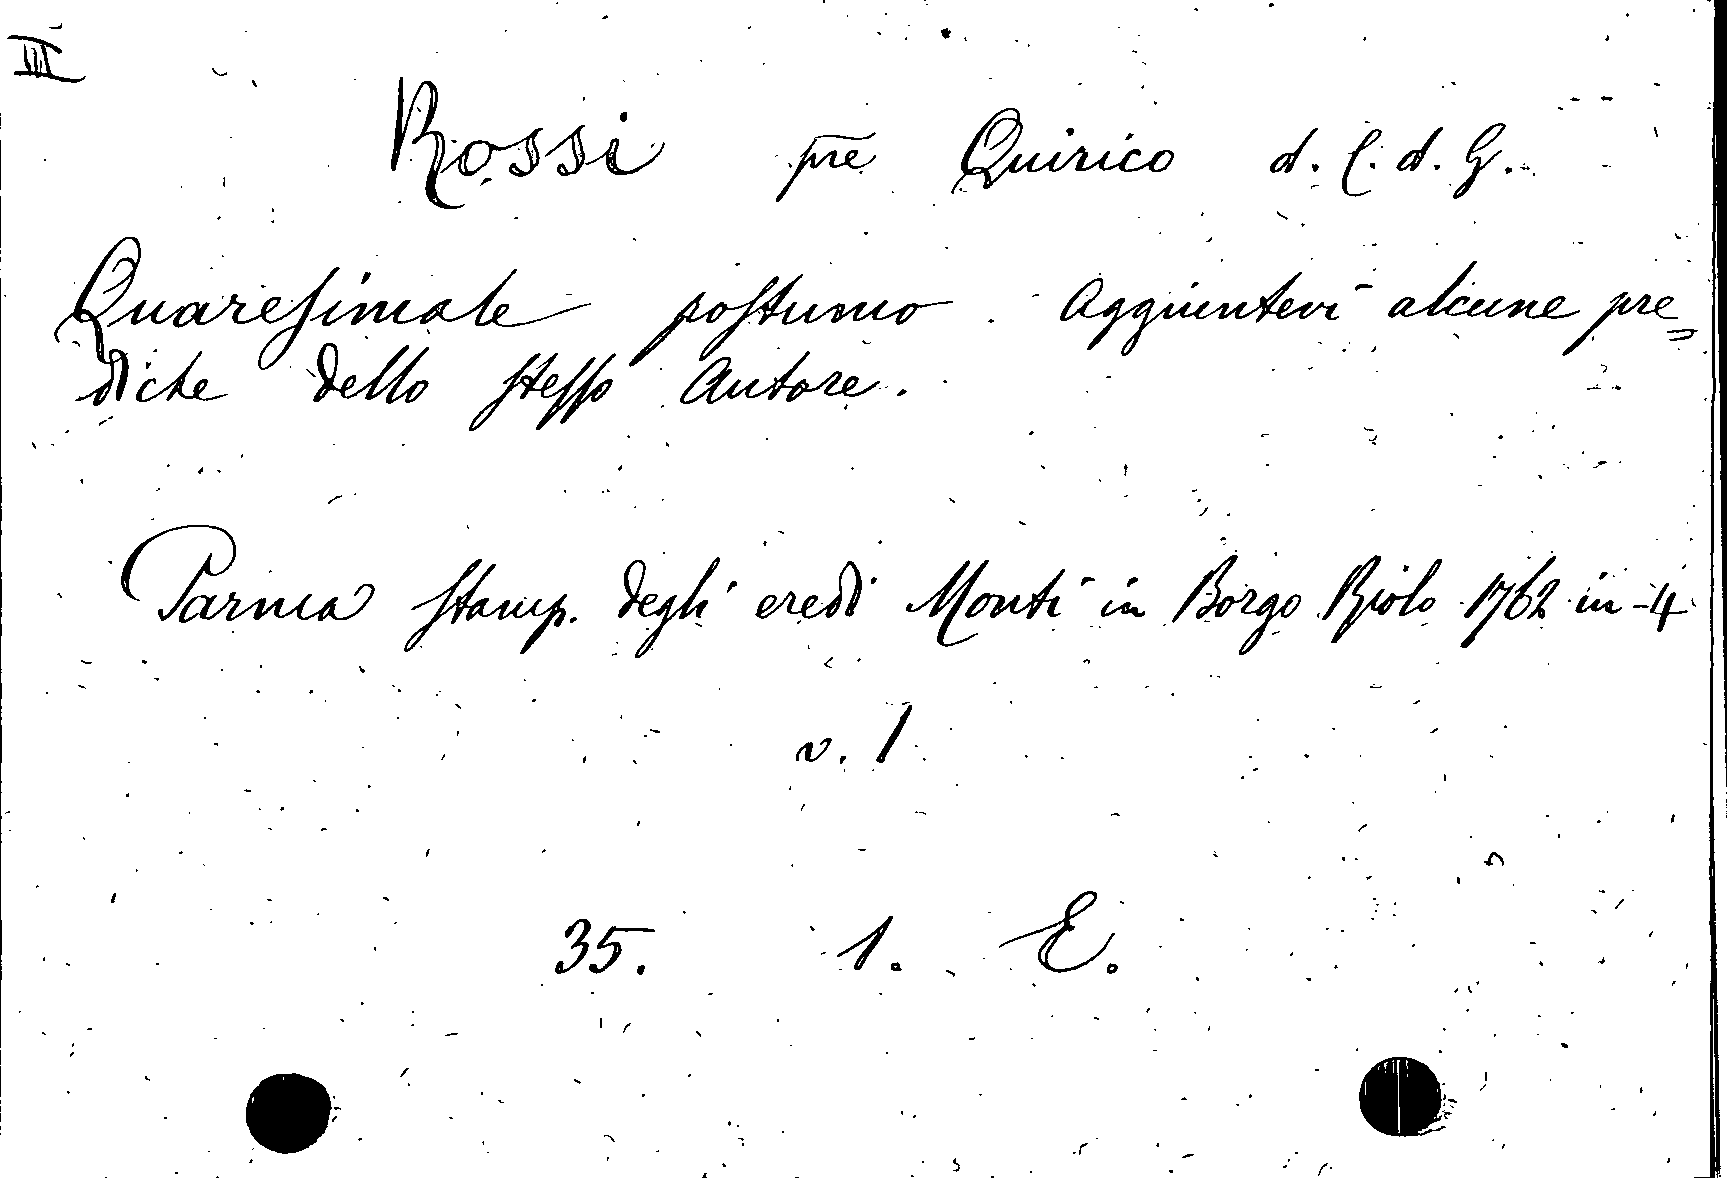 III
Rossi pre Quirico d. C. d. G.
Quaresimale postumo. Aggiuntevi alcune pre=
diche dello stesso Autore.
Parma Stamp. degli eredi Monti in Borgo Riolo 1762 in-4
v. 1
35. 1. E.